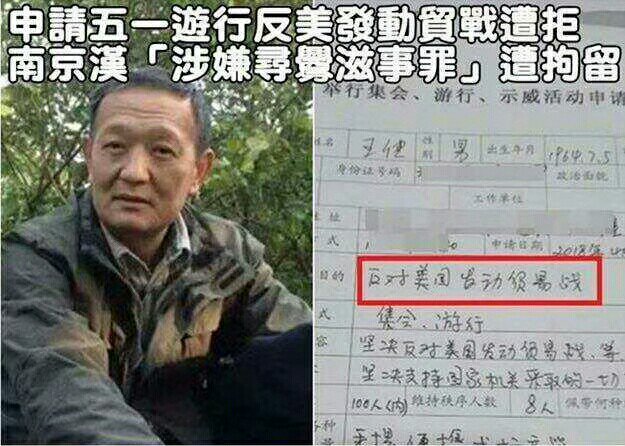 申請五一遊行反美發動貿戰遭拒
南京漢「涉嫌尋釁滋事罪」遭拘留
举行集会、游行、示威活动申请
名 王健 性别 男 出生年月 1964.7.5
身份证号码 政治面貌
工作单位
址
式 申请日期 2018年
目的 反对美国发动贸易战
式 集会、游行
容 坚决反对美国发动贸易战、等
坚决支持国家机关采取的一切
100人(内) 维持秩序人数 8人 佩带何种